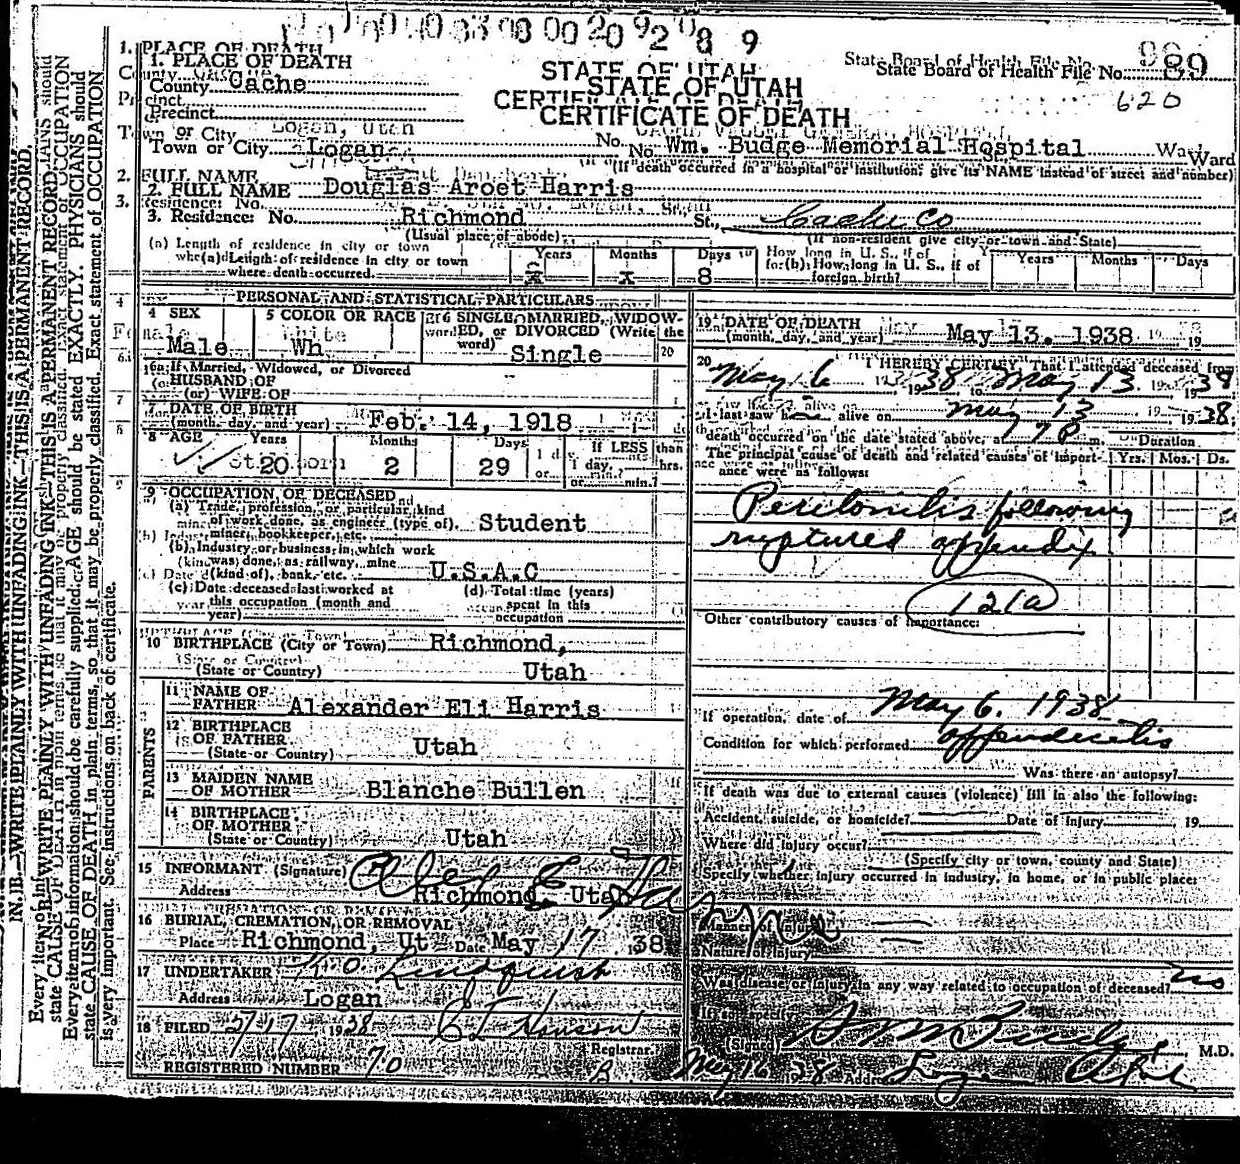 STATE OF UTAH
CERTIFICATE OF DEATH
State Board of Health File No. 89
620
1. PLACE OF DEATH
County Cache
Precinct
Town or City Logan No. Wm. Budge Memorial Hospital Ward
(If death occurred in a hospital or institution, give its NAME instead of street and number)
2. FULL NAME Douglas Aroet Harris
3. Residence: No. Richmond St., Cache Co
(Usual place of abode) (If non-resident give city or town and State)
(a) Length of residence in city or town where death occurred. Years x Months x Days 8
(b) How long in U. S., if of foreign birth? Years Months Days
PERSONAL AND STATISTICAL PARTICULARS
4 SEX Male
5 COLOR OR RACE Wh
6 SINGLE, MARRIED, WIDOWED, or DIVORCED (Write word) Single
6a If Married, Widowed, or Divorced
HUSBAND OF
(or) WIFE OF
7 DATE OF BIRTH (month, day, and year) Feb. 14, 1918
8 AGE Years 20 Months 2 Days 29 If LESS 1 day, hrs. or min.?
9 OCCUPATION OF DECEASED
(a) Trade, profession, or particular kind of work done, as engineer (type of), miner, bookkeeper, etc. Student
(b) Industry or business in which work was done, as railway, mine (kind of), bank, etc. U.S.A.C
(c) Date deceased last worked at this occupation (month and year)
(d) Total time (years) spent in this occupation
10 BIRTHPLACE (City or Town) Richmond,
(State or Country) Utah
PARENTS
11 NAME OF FATHER Alexander Eli Harris
12 BIRTHPLACE OF FATHER (State or Country) Utah
13 MAIDEN NAME OF MOTHER Blanche Bullen
14 BIRTHPLACE OF MOTHER (State or Country) Utah
15 INFORMANT (Signature) Alex E Harris
Address Richmond, Utah
16 BURIAL, CREMATION, OR REMOVAL
Place Richmond, Ut Date May 17, 38
17 UNDERTAKER Lindquist
Address Logan
18 FILED 5/17 1938
Registrar.
REGISTERED NUMBER 70
19 DATE OF DEATH (month, day, and year) May 13. 1938
20 I HEREBY CERTIFY, That I attended deceased from
May 6 1938 to May 13 1938
I last saw h alive on May 13 1938.
death occurred on the date stated above, at 7 P m.
The principal cause of death and related causes of importance were as follows:
Duration Yrs. Mos. Ds.
Peritonitis following
ruptured appendix
121a
Other contributory causes of importance:
If operation, date of May 6. 1938
Condition for which performed appendicitis
Was there an autopsy?
If death was due to external causes (violence) fill in also the following:
Accident, suicide, or homicide? Date of injury 19
Where did injury occur?
(Specify city or town, county and State)
Specify whether injury occurred in industry, in home, or in public place:
Manner of injury
Nature of injury
Was disease or injury in any way related to occupation of deceased? no
If so, specify
(Signed) M.D.
May 16 38 Address Logan Utah
N. B.—WRITE PLAINLY WITH UNFADING INK—THIS IS A PERMANENT RECORD.
Every item of information should be carefully supplied. AGE should be stated EXACTLY. PHYSICIANS should
state CAUSE OF DEATH in plain terms, so that it may be properly classified. Exact statement of OCCUPATION
is very important. See instructions on back of certificate.